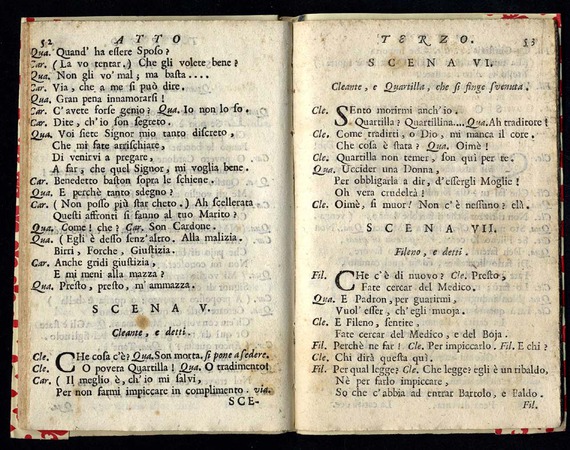 52 ATTO
Qua. Quand' ha essere Sposo?
Car. (La vo tentar.) Che gli volete bene?
Qua. Non gli vo' mal; ma basta....
Car. Via, che a me si può dire.
Qua. Gran pena innamorarsi!
Car. C'avete forse genio? Qua. Io non lo so.
Car. Dite, ch'io son segreto.
Qua. Voi siete Signor mio tanto discreto,
Che mi fate arrischiare,
Di venirvi a pregare,
A far, che quel Signor, mi voglia bene.
Car. Benedetto baston sopra le schiene.
Qua. E perchè tanto sdegno?
Car. (Non posso più star cheto.) Ah scellerata
Questi affronti si fanno al tuo Marito?
Qua. Come! che? Car. Son Cardone.
Qua. (Egli è desso senz'altro. Alla malizia.
Birri, Forche, Giustizia.
Car. Anche gridi giustizia,
E mi meni alla mazza?
Qua. Presto, presto, m' ammazza.
SCENA V.
Cleante, e detti.
Cle. CHe cosa c'è? Qua. Son morta. si pone a sedere.
Cle. O povera Quartilla! Qua. O tradimento!
Car. (Il meglio è, ch'io mi salvi,
Per non farmi impiccare in complimento. via.
SCE-
TERZO. 53
SCENA VI.
Cleante, e Quartilla, che si finge svenuta.
Cle. SEnto morirmi anch'io.
Quartilla? Quartillina... Qua. Ah traditore!
Cle. Come tradirti, o Dio, mi manca il core.
Che cosa è stata? Qua. Oimè!
Cle. Quartilla non temer, son qui per te.
Qua. Uccider una Donna,
Per obbligarla a dir, d'essergli Moglie!
Oh vera crudeltà!
Cle. Oimè, si muor! Non c'è nessuno? elà.
SCENA VII.
Fileno, e detti.
Fil. CHe c'è di nuovo? Cle. Presto,
Fate cercar del Medico.
Qua. E Padron, per guarirmi,
Vuol' esser, ch'egli muoja.
Cle. E Fileno, sentire,
Fate cercar del Medico, e del Boja.
Fil. Perchè ne far! Cle. Per impiccarlo. Fil. E chi?
Cle. Chi dirà questa qui.
Fil. Per qual legge? Cle. Che legge? egli è un ribaldo.
Nè per farlo impiccare,
So che c'abbia ad entrar Bartolo, e Baldo.
Fil.